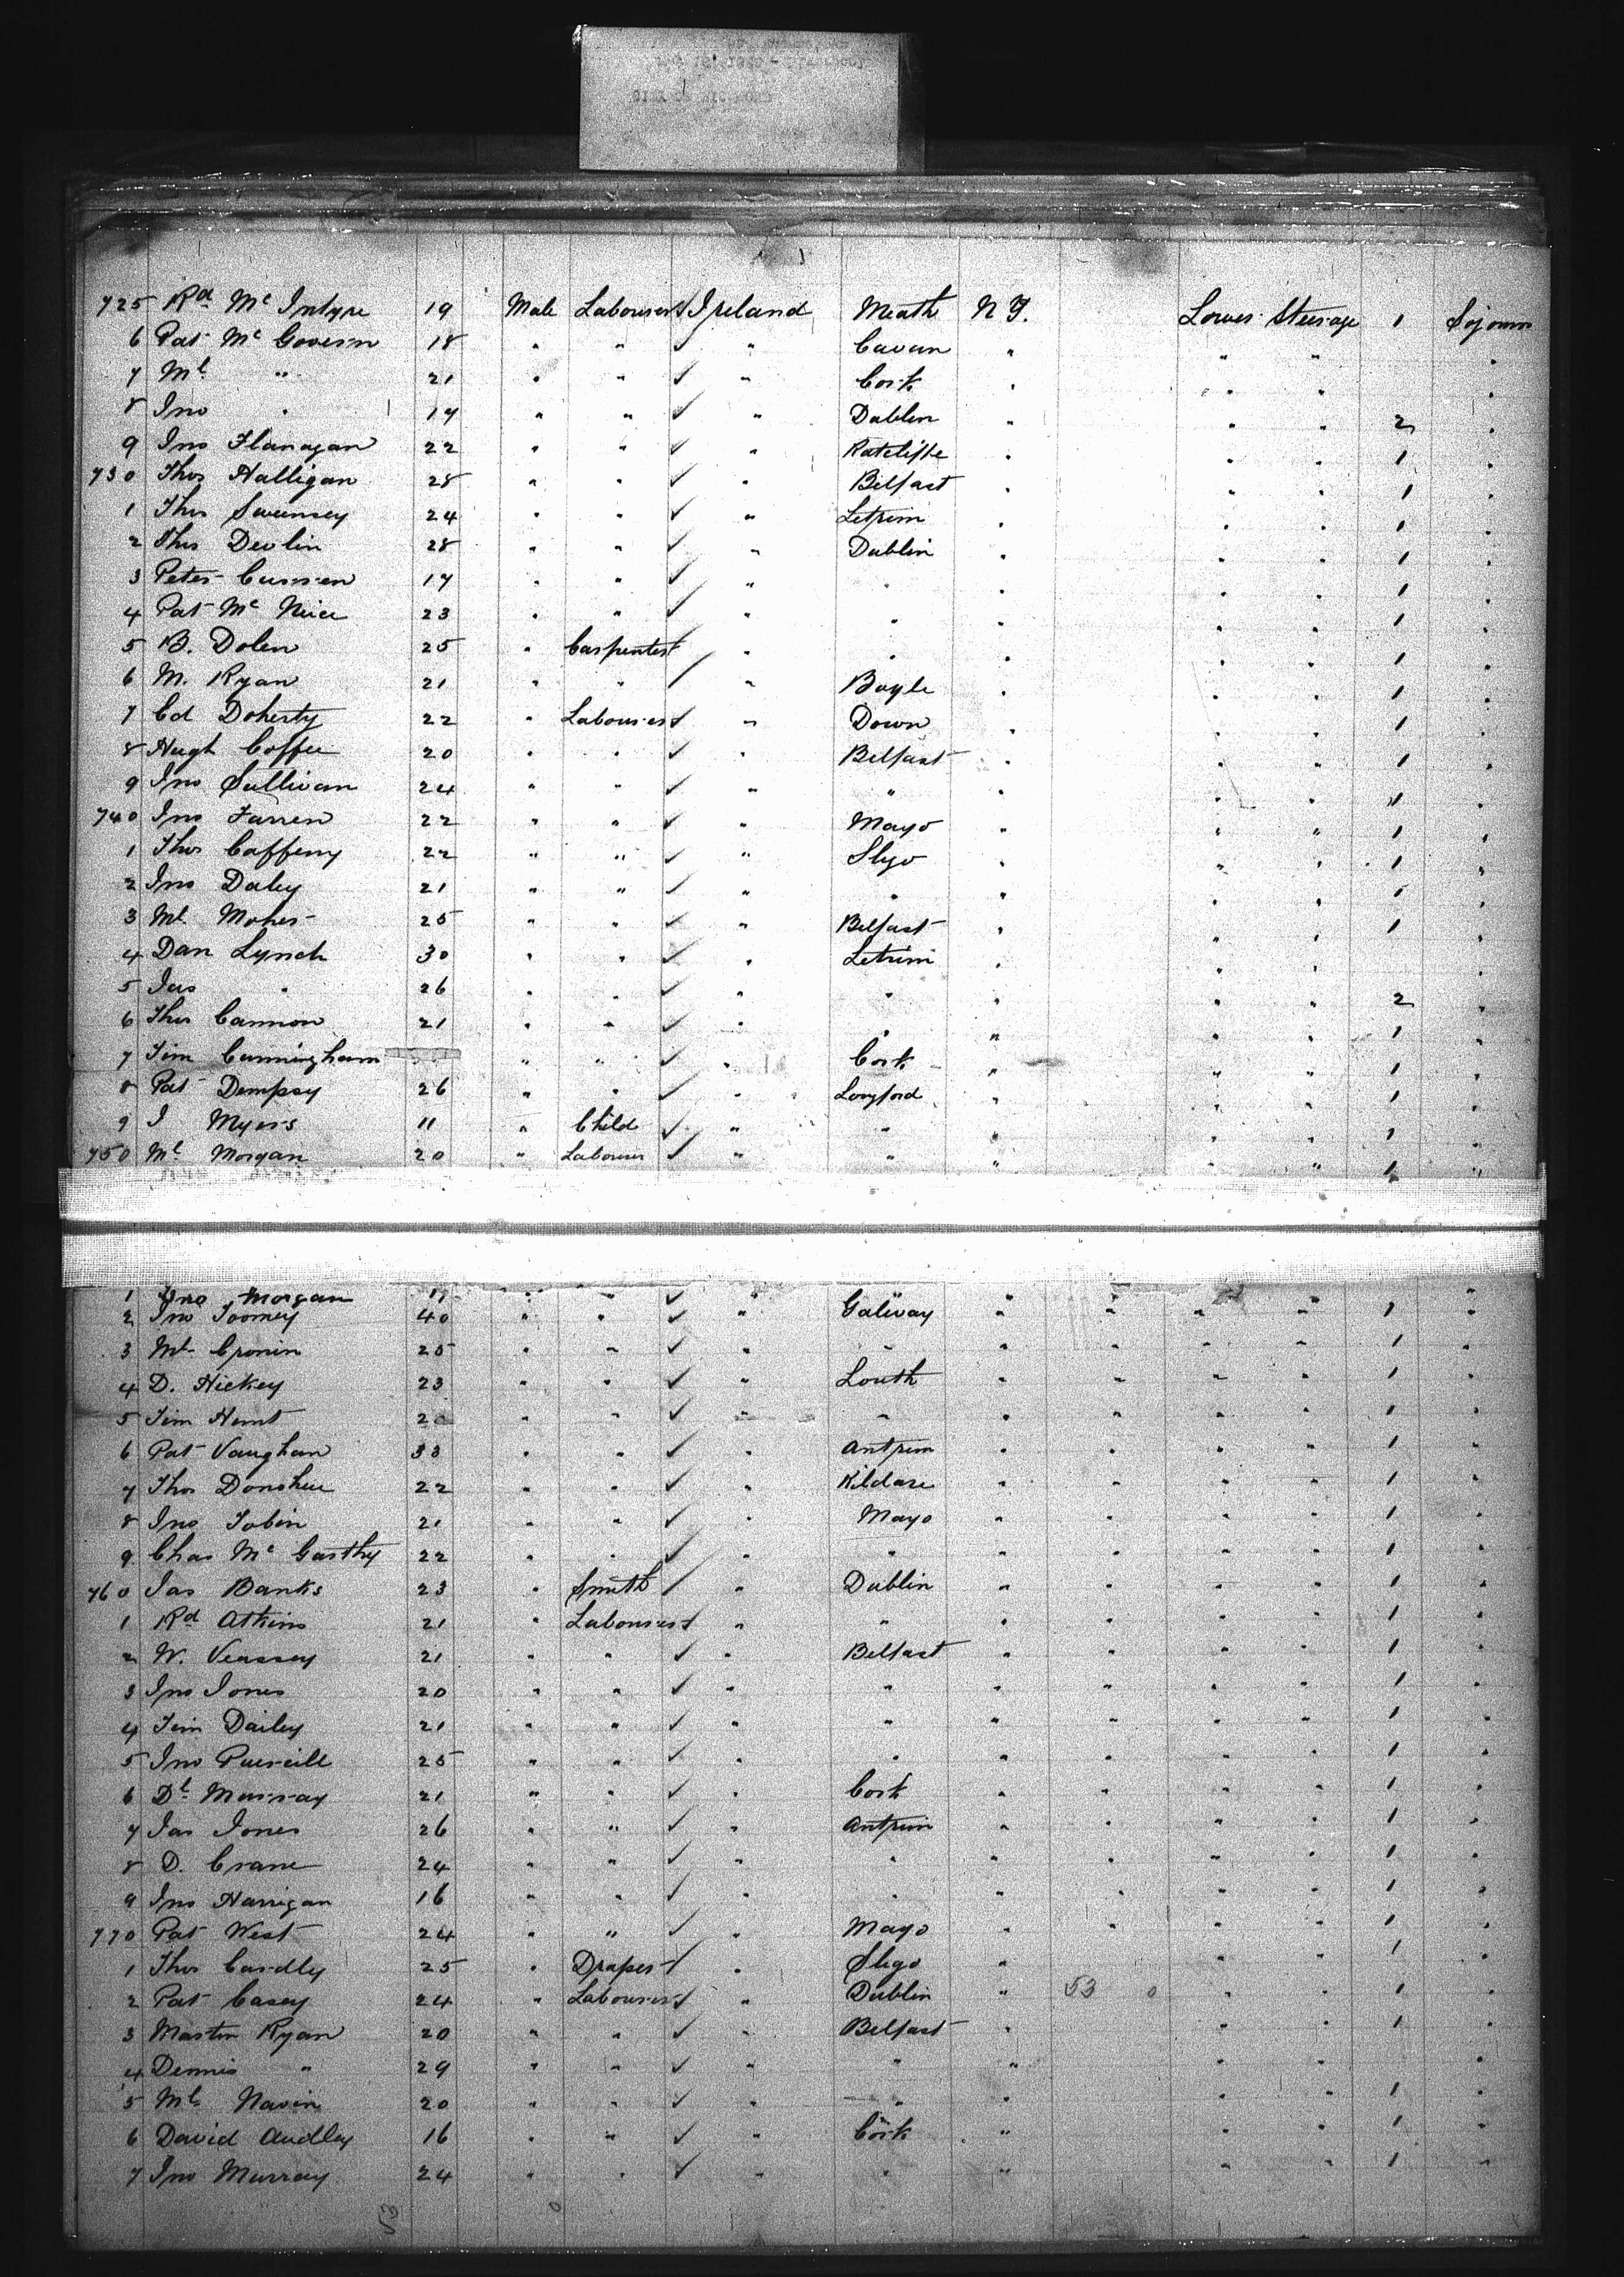 725 Rd Mc Intyre 19 Male Labourer Ireland Meath N Y. Lower Steerage 1 Sojourn
6 Pat Mc Govern 18 " " " Cavan " " " "
7 Ml " 21 " " " Cork " " " "
8 Jno " 17 " " " Dublin " " " 2 "
9 Jno Flanagan 22 " " " Ratcliffe " " " 1 "
730 Thos Halligan 28 " " " Belfast " " " 1 "
1 Thos Sweeney 24 " " " Letrim " " " 1 "
2 Thos Devlin 28 " " " Dublin " " " 1 "
3 Peter Curren 17 " " " " " " " 1 "
4 Pat Mc Neice 23 " " " " " " " 1 "
5 B. Dolen 25 " Carpenter " " " " " 1 "
6 M. Ryan 21 " " " Boyle " " " 1 "
7 Cd Doherty 22 " Labourer " Down " " " 1 "
8 Hugh Coffee 20 " " " Belfast " " " 1 "
9 Jno Sullivan 24 " " " " " " " 1 "
740 Jno Farren 22 " " " Mayo " " " 1 "
1 Thos Caffeny 22 " " " Slgo " " " 1 "
2 Jno Daley 21 " " " " " " " 1 "
3 Ml Moher 25 " " " Belfast " " " 1 "
4 Dan Lynch 30 " " " Letrim " " " "
5 Jas " 26 " " " " " " " 2 "
6 Thos Cannon 21 " " " " " " " 1 "
7 Tim Cunningham " " " Cork " " " 1 "
8 Pat Dempsy 26 " " " Longford " " " 1 "
9 J Myers 11 " Child " " " " " 1 "
750 Ml Morgan 20 " Labourer " " " " " 1 "
1 Jno Morgan " " " " " " "
2 Jno Toomey 40 " " " Galway " " " " 1 "
3 Ml Cronin 25 " " " " " " " " 1 "
4 D. Hickey 23 " " " Louth " " " " 1 "
5 Tim Hunt " " " " " " " " 1 "
6 Pat Vaughan 33 " " " Antrim " " " " 1 "
7 Thos Donohue 22 " " " Kildare " " " " 1 "
8 Jno Tobin 21 " " " Mayo " " " " 1 "
9 Chas Mc Garthy 22 " " " " " " " " 1 "
760 Jas Banks 23 " Smith " Dublin " " " " 1 "
1 Rd Atkins 21 " Labourer " " " " " " 1 "
2 W. Veassey 21 " " " Belfast " " " " 1 "
3 Jno Jones 20 " " " " " " " " 1 "
4 Tim Dailey 21 " " " " " " " " 1 "
5 Jno Purcill 25 " " " " " " " " 1 "
6 Dl Murray 21 " " " Cork " " " " 1 "
7 Jas Jones 26 " " " Antrim " " " " 1 "
8 D. Crane 24 " " " " " " " " 1 "
9 Jno Harrigan 16 " " " " " " " " 1 "
770 Pat West 24 " " " Mayo " " " " 1 "
1 Thos Cardly 25 " Draper " Sligo " " " 1 "
2 Pat Casey 24 " Labourer " Dublin " 53 0 " " 1 "
3 Martin Ryan 20 " " " Belfast " " " 1 "
4 Dennis " 29 " " " " " " " "
5 Ml Navin 20 " " " " " " " 1 "
6 David Audley 16 " " " Cork " " " 1 "
7 Jno Murray 24 " " " " " " " 1 "